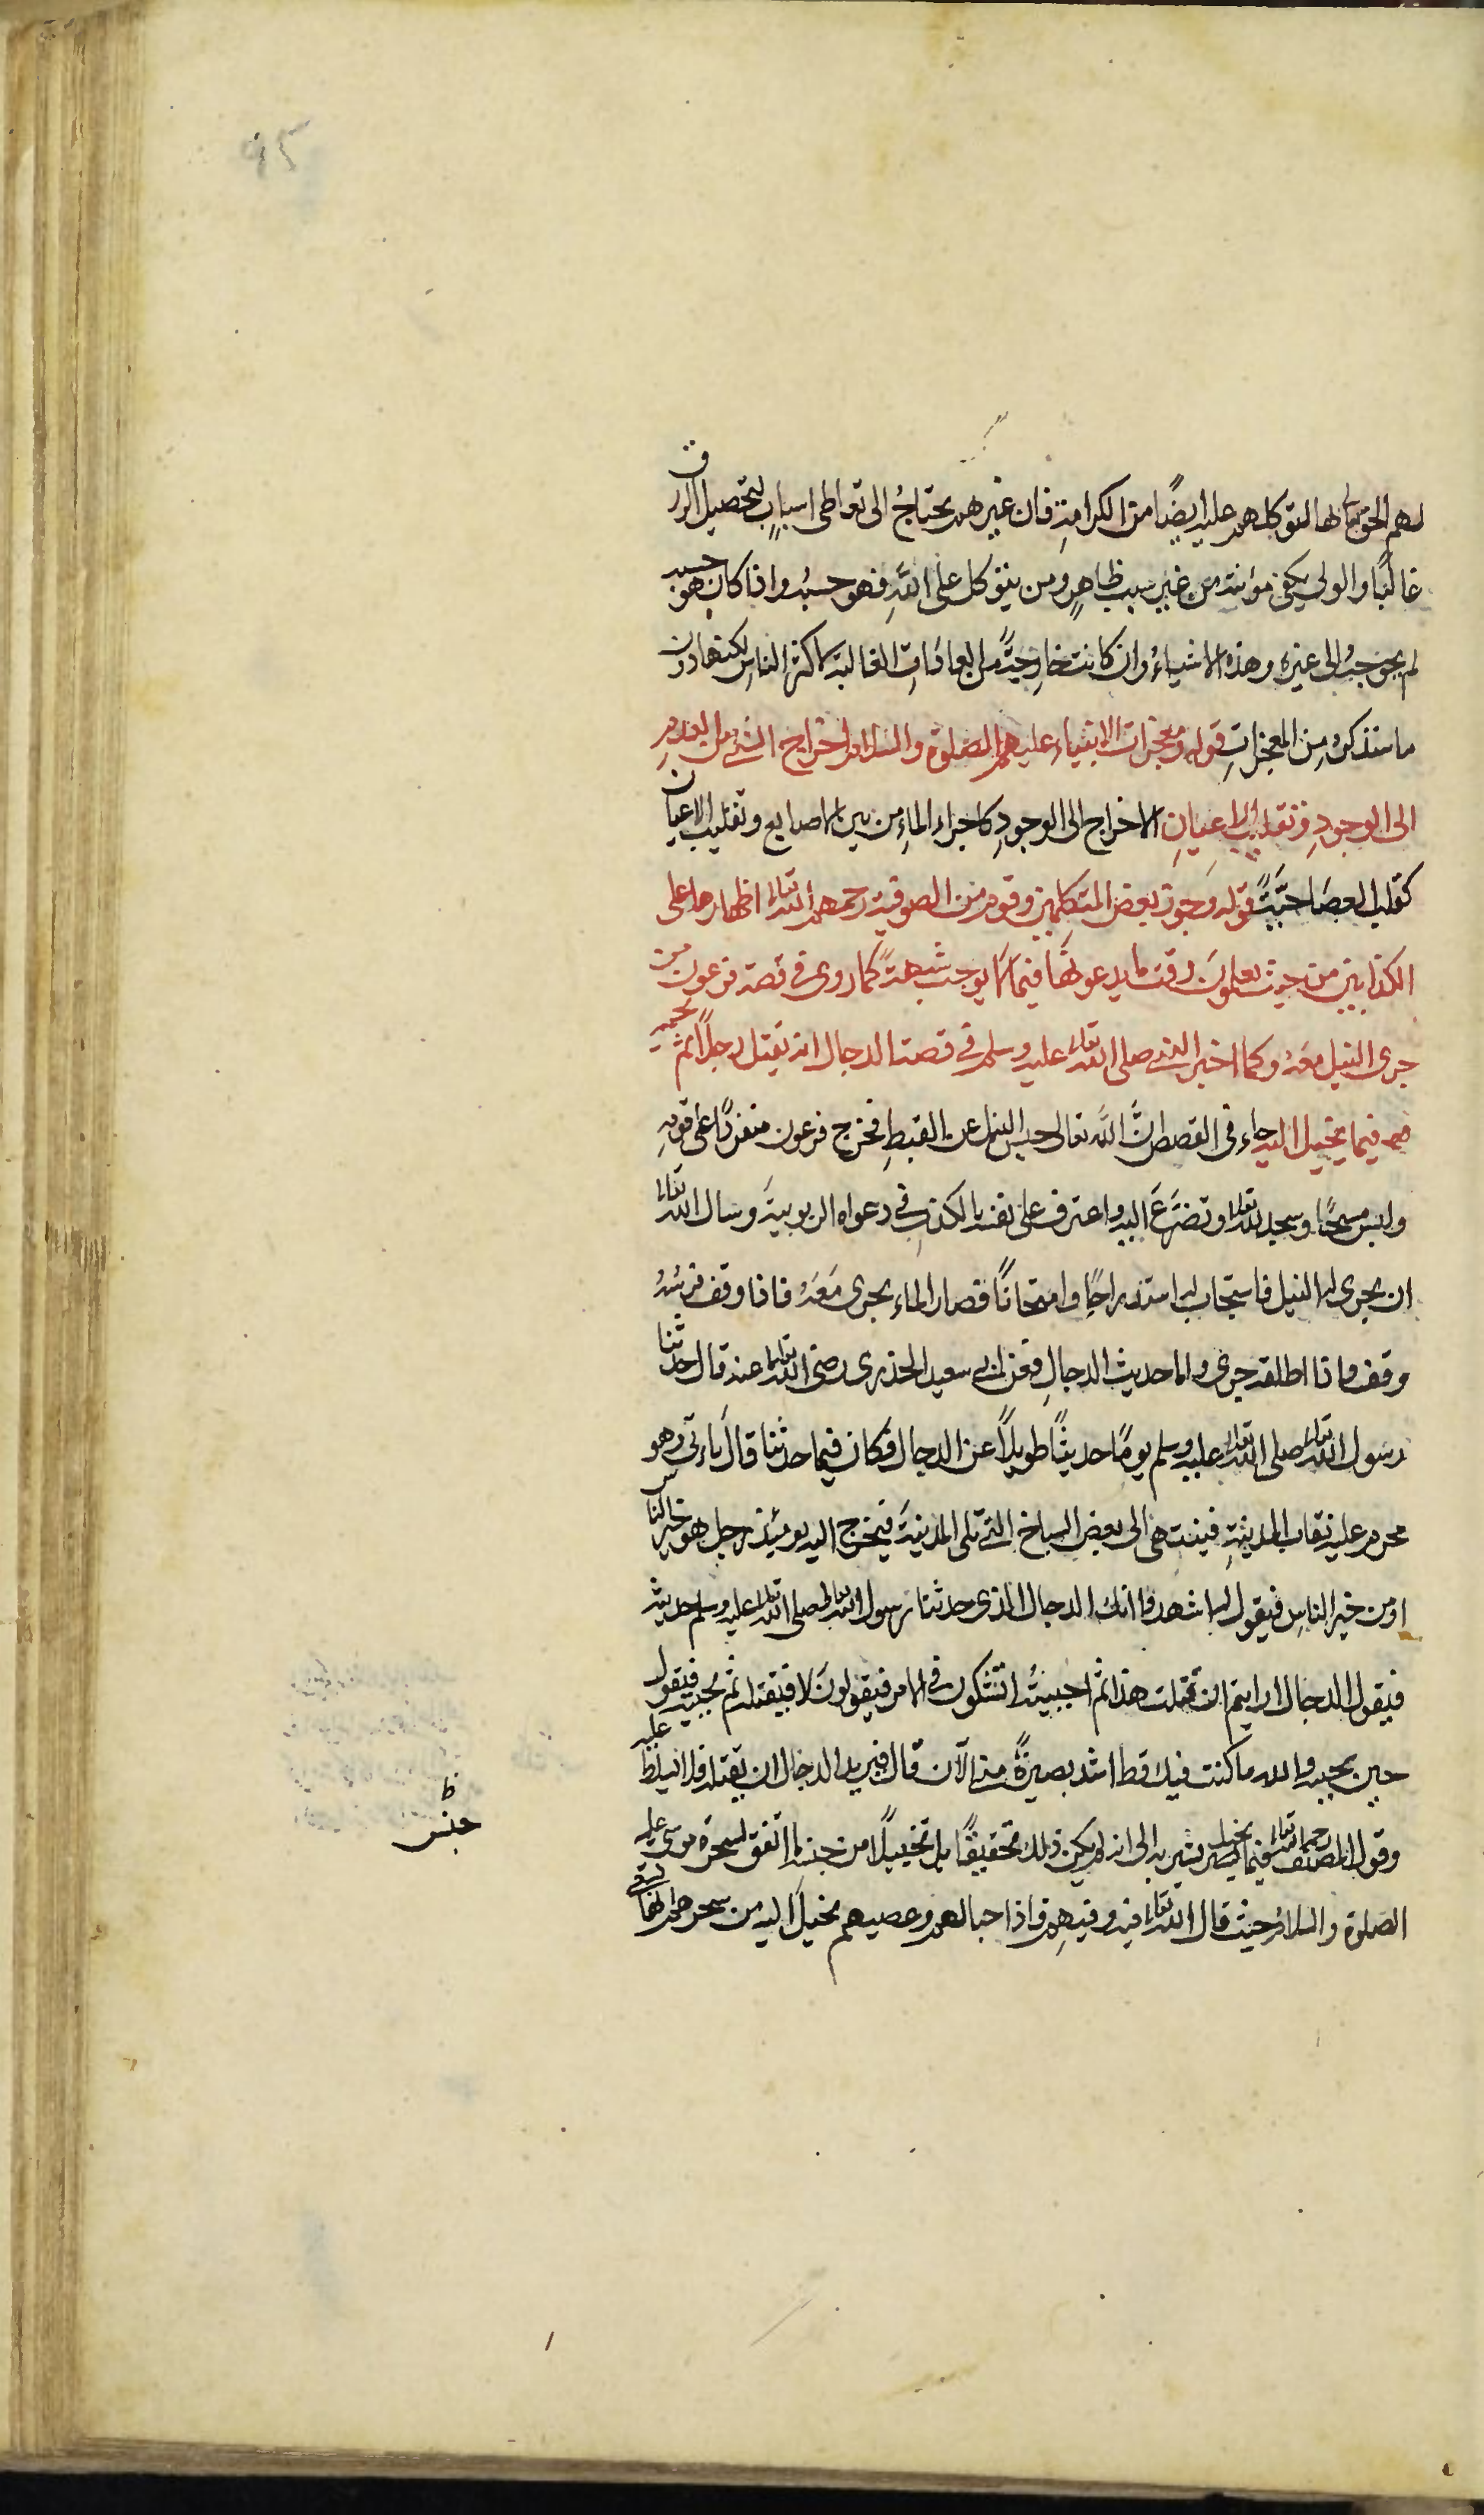 لهم الحق تعالى لتوكلهم عليه ايضًا من الكرامةِ فان غيرهم يحتاجُ الى تعاطى اسبابٍ لتحصيل الرزق
غالبًا والولى يكفى مؤنته من غير سبب ظاهرٍ ومن يتوكل على اللهِ فهو حسبُه واذا كان هو حسبه
لم يحوجهُ الى غيره وهذه الاشياءُ وان كانت خارجةً من العادَات الغالبة لاكثر الناسِ لكنها دون
ما سنذكرهُ مِن المعجزاتِ قوله ومعجزات الانبياء عليهم الصلوة والسلام اخراج الشئ من العدمِ
الى الوجودِ وتقليب الاعيانِ الاخراج الى الوجودِ كاجراء الماءِ من بين الاصابع وتقليب الاعيان
كقلب العصَا حيَّةً قوله وجوز بعض المتكلمين وقوم من الصوفية رحمهم الله تعالى اظهارها على
الكذابين من حيث يعلمون وقت ما يدعونها فيما لا يوجب شبهةً كما روى فى قصة فرعون من
جرى النيل معهُ وكما اخبر النبى صلى الله تعالى عليه وسلم فى قصة الدجال انه يقتل رجلاً ثم يحييه
فيما يخيل اليه جاء فى القصص ان الله تعالى حبس النيل عن القبطِ فخرج فرعون منفردًا عن قومهِ
ولبس مسحًا وسجد لله تعالى وتضرَّعَ اليه واعترف على نفسه بالكذبِ فى دعواه الربوبيةَ وسال الله تعالى
ان يجرى له النيل فاستجاب له استدراجًا وامتحانًا فصار الماء يجرى مَعَهُ فاذا وقف فرسُهُ
وقف واذا اطلقه جرى واما حديث الدجالِ فعن ابى سعيد الخدرى رضى الله تعالى عنه قال حدثنا
رسول الله تعالى صلى الله تعالى عليه وسلم يومًا حديثًا طويلاً عن الدجال فكان فيما حدثنا قال ياءتى وهو
محرم عليه نقاب المدينةِ فينتهى الى بعض السباخ التى تلى المدينةَ فيخرج اليه يومئذ رجل هو خير الناس
او من خير الناسِ فيقول له اشهد انك الدجال الذى حدثنا رسول الله تعالى صلى الله تعالى عليه وسلم حديثه
فيقول الدجال ارايتم ان قتلت هذا ثم احييتُه اتشكون فى الامر فيقولونَ لا فيقتله ثم يحييه فيقول
حين يحييه والله ما كنت فيك قط اشد بصيرةً منى الآن قال فيريد الدجال ان يقتله فلا يسلط عليه
وقول المصنف رحمه الله تعالى فيما يخيل يشير به الى انه لم يكن ذلك تحقيقًا بل تخييلًا من جنس ما اتفق لسحرة موسى عليه
الصلوة والسلام حيث قال الله تعالى فيه وفيهم فاذا حبالهم وعصيهم يخيل اليه من سحرهم انها تسعى
ظ
جنس